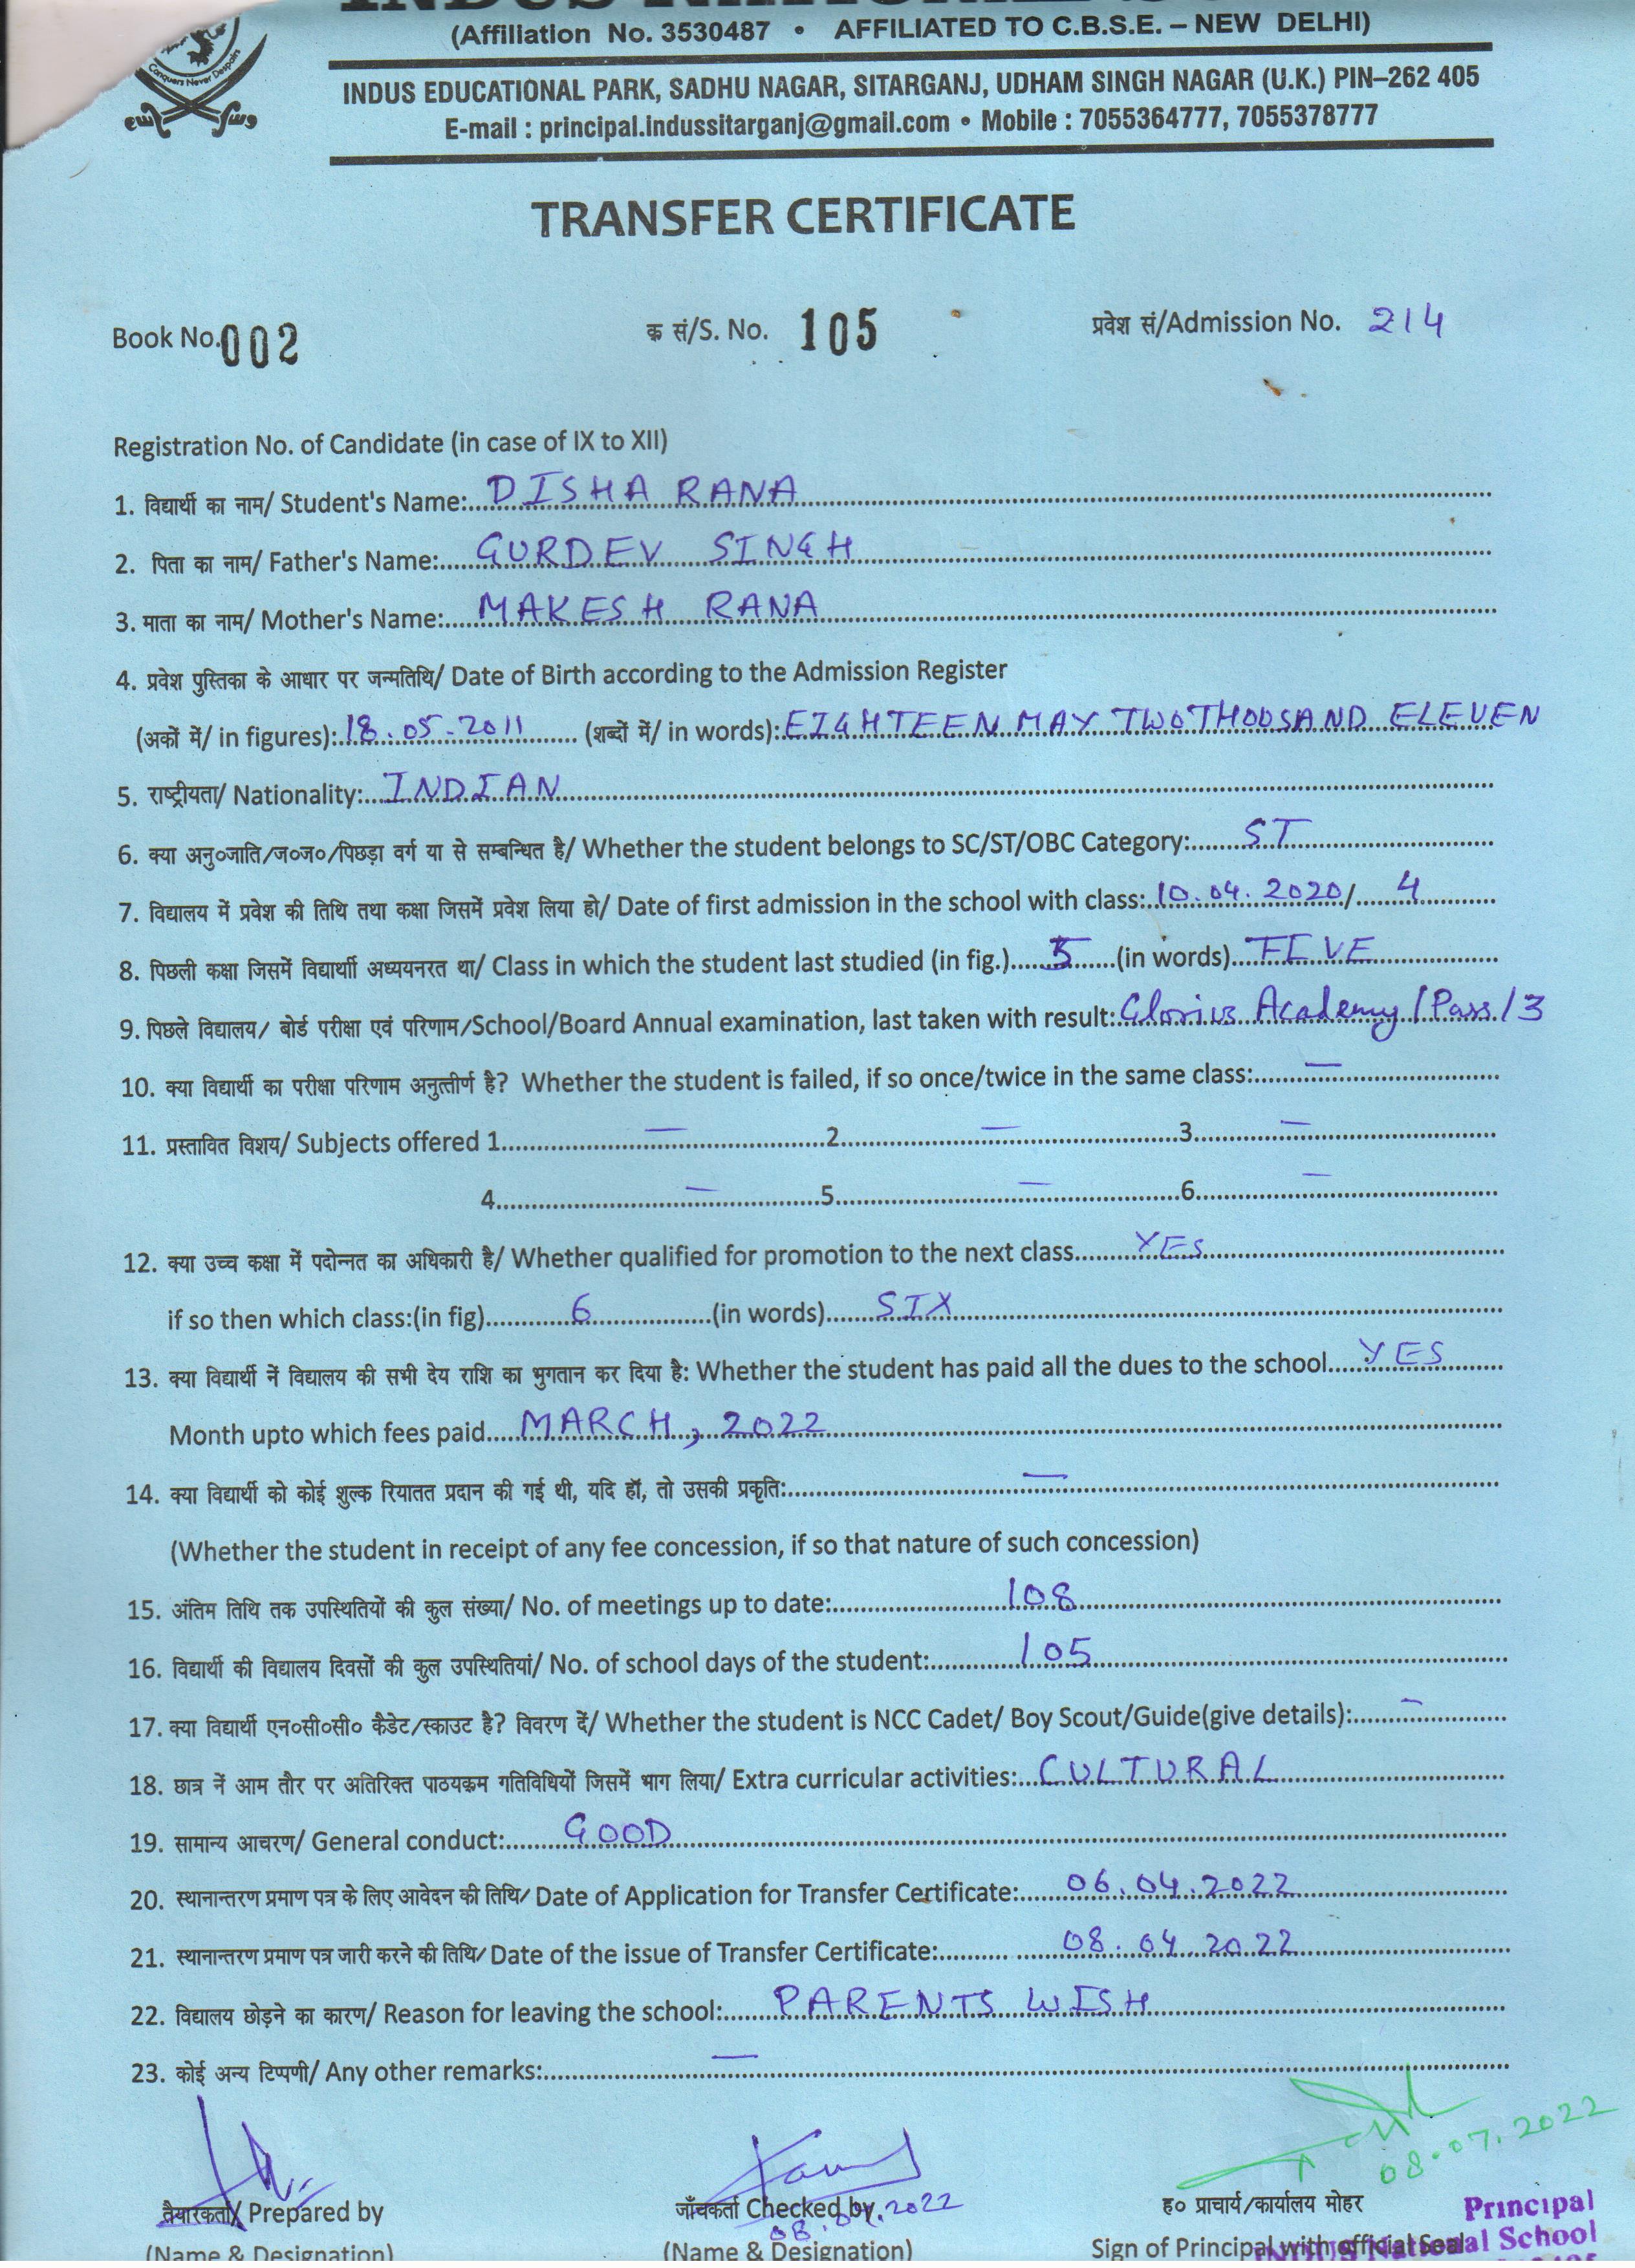 (Affiliation No. 3530487 • AFFILIATED TO C.B.S.E. – NEW DELHI)
Conquers Never Despairs
INDUS EDUCATIONAL PARK, SADHU NAGAR, SITARGANJ, UDHAM SINGH NAGAR (U.K.) PIN–262 405
E-mail : principal.indussitarganj@gmail.com • Mobile : 7055364777, 7055378777
TRANSFER CERTIFICATE
Book No. 002 क सं/S. No. 105 प्रवेश सं/Admission No. 214
Registration No. of Candidate (in case of IX to XII)
1. विद्यार्थी का नाम/ Student's Name: DISHA RANA
2. पिता का नाम/ Father's Name: GURDEV SINGH
3. माता का नाम/ Mother's Name: MAKESH RANA
4. प्रवेश पुस्तिका के आधार पर जन्मतिथि/ Date of Birth according to the Admission Register
(अकों में/ in figures): 18.05.2011 (शब्दों में/ in words): EIGHTEEN MAY TWO THOUSAND ELEVEN
5. राष्ट्रीयता/ Nationality: INDIAN
6. क्या अनु०जाति/ज०ज०/पिछड़ा वर्ग या से सम्बन्धित है/ Whether the student belongs to SC/ST/OBC Category: ST
7. विद्यालय में प्रवेश की तिथि तथा कक्षा जिसमें प्रवेश लिया हो/ Date of first admission in the school with class: 10.04.2020/ 4
8. पिछली कक्षा जिसमें विद्यार्थी अध्ययनरत था/ Class in which the student last studied (in fig.) 5 (in words) FIVE
9. पिछले विद्यालय/ बोर्ड परीक्षा एवं परिणाम/School/Board Annual examination, last taken with result: Glorius Academy / Pass / 3
10. क्या विद्यार्थी का परीक्षा परिणाम अनुत्तीर्ण है? Whether the student is failed, if so once/twice in the same class: —
11. प्रस्तावित विशय/ Subjects offered 1. — 2. — 3. —
4. — 5. — 6. —
12. क्या उच्च कक्षा में पदोन्नत का अधिकारी है/ Whether qualified for promotion to the next class YES
if so then which class:(in fig) 6 (in words) SIX
13. क्या विद्यार्थी नें विद्यालय की सभी देय राशि का भुगतान कर दिया है: Whether the student has paid all the dues to the school YES
Month upto which fees paid MARCH, 2022
14. क्या विद्यार्थी को कोई शुल्क रियातत प्रदान की गई थी, यदि हॉ, तो उसकी प्रकृति: —
(Whether the student in receipt of any fee concession, if so that nature of such concession)
15. अंतिम तिथि तक उपस्थितियों की कुल संख्या/ No. of meetings up to date: 108
16. विद्यार्थी की विद्यालय दिवसों की कुल उपस्थितियां/ No. of school days of the student: 105
17. क्या विद्यार्थी एन०सी०सी० कैडेट/स्काउट है? विवरण दें/ Whether the student is NCC Cadet/ Boy Scout/Guide(give details): —
18. छात्र नें आम तौर पर अतिरिक्त पाठयक्रम गतिविधियों जिसमें भाग लिया/ Extra curricular activities: CULTURAL
19. सामान्य आचरण/ General conduct: GOOD
20. स्थानान्तरण प्रमाण पत्र के लिए आवेदन की तिथि/ Date of Application for Transfer Certificate: 06.04.2022
21. स्थानान्तरण प्रमाण पत्र जारी करने की तिथि/ Date of the issue of Transfer Certificate: 08.04.2022
22. विद्यालय छोड़ने का कारण/ Reason for leaving the school: PARENTS WISH
23. कोई अन्य टिप्पणी/ Any other remarks: —
08.07.2022
तैयारकर्ता/ Prepared by जाँचकर्ता Checked by ह० प्राचार्य/कार्यालय मोहर
(Name & Designation) (Name & Designation) Sign of Principal with official Seal
Principal
INDUS National School